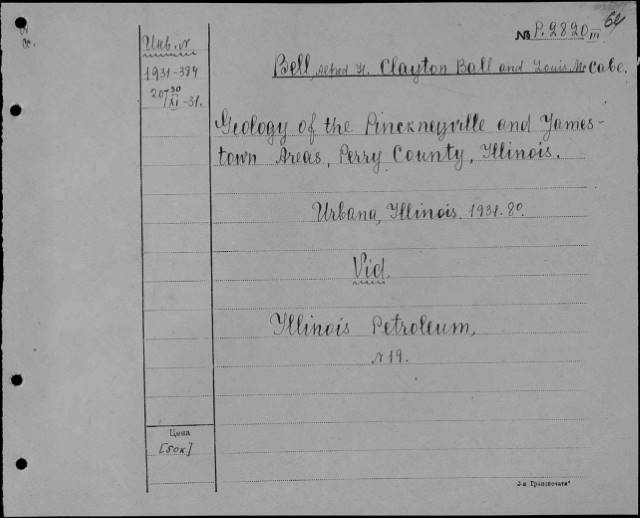 64
№ P.2820 III
Инв. N
1931-384
20/30 XI -31.
Bell, Alfred H. Clayton Ball and Louis Mc Cabe.
Geology of the Pinckneyville and James-
town Areas, Perry County, Illinois.
Urbana, Illinois. 1931. 8º.
Vid.
Illinois Petroleum.
N 19.
Цена
[50к]